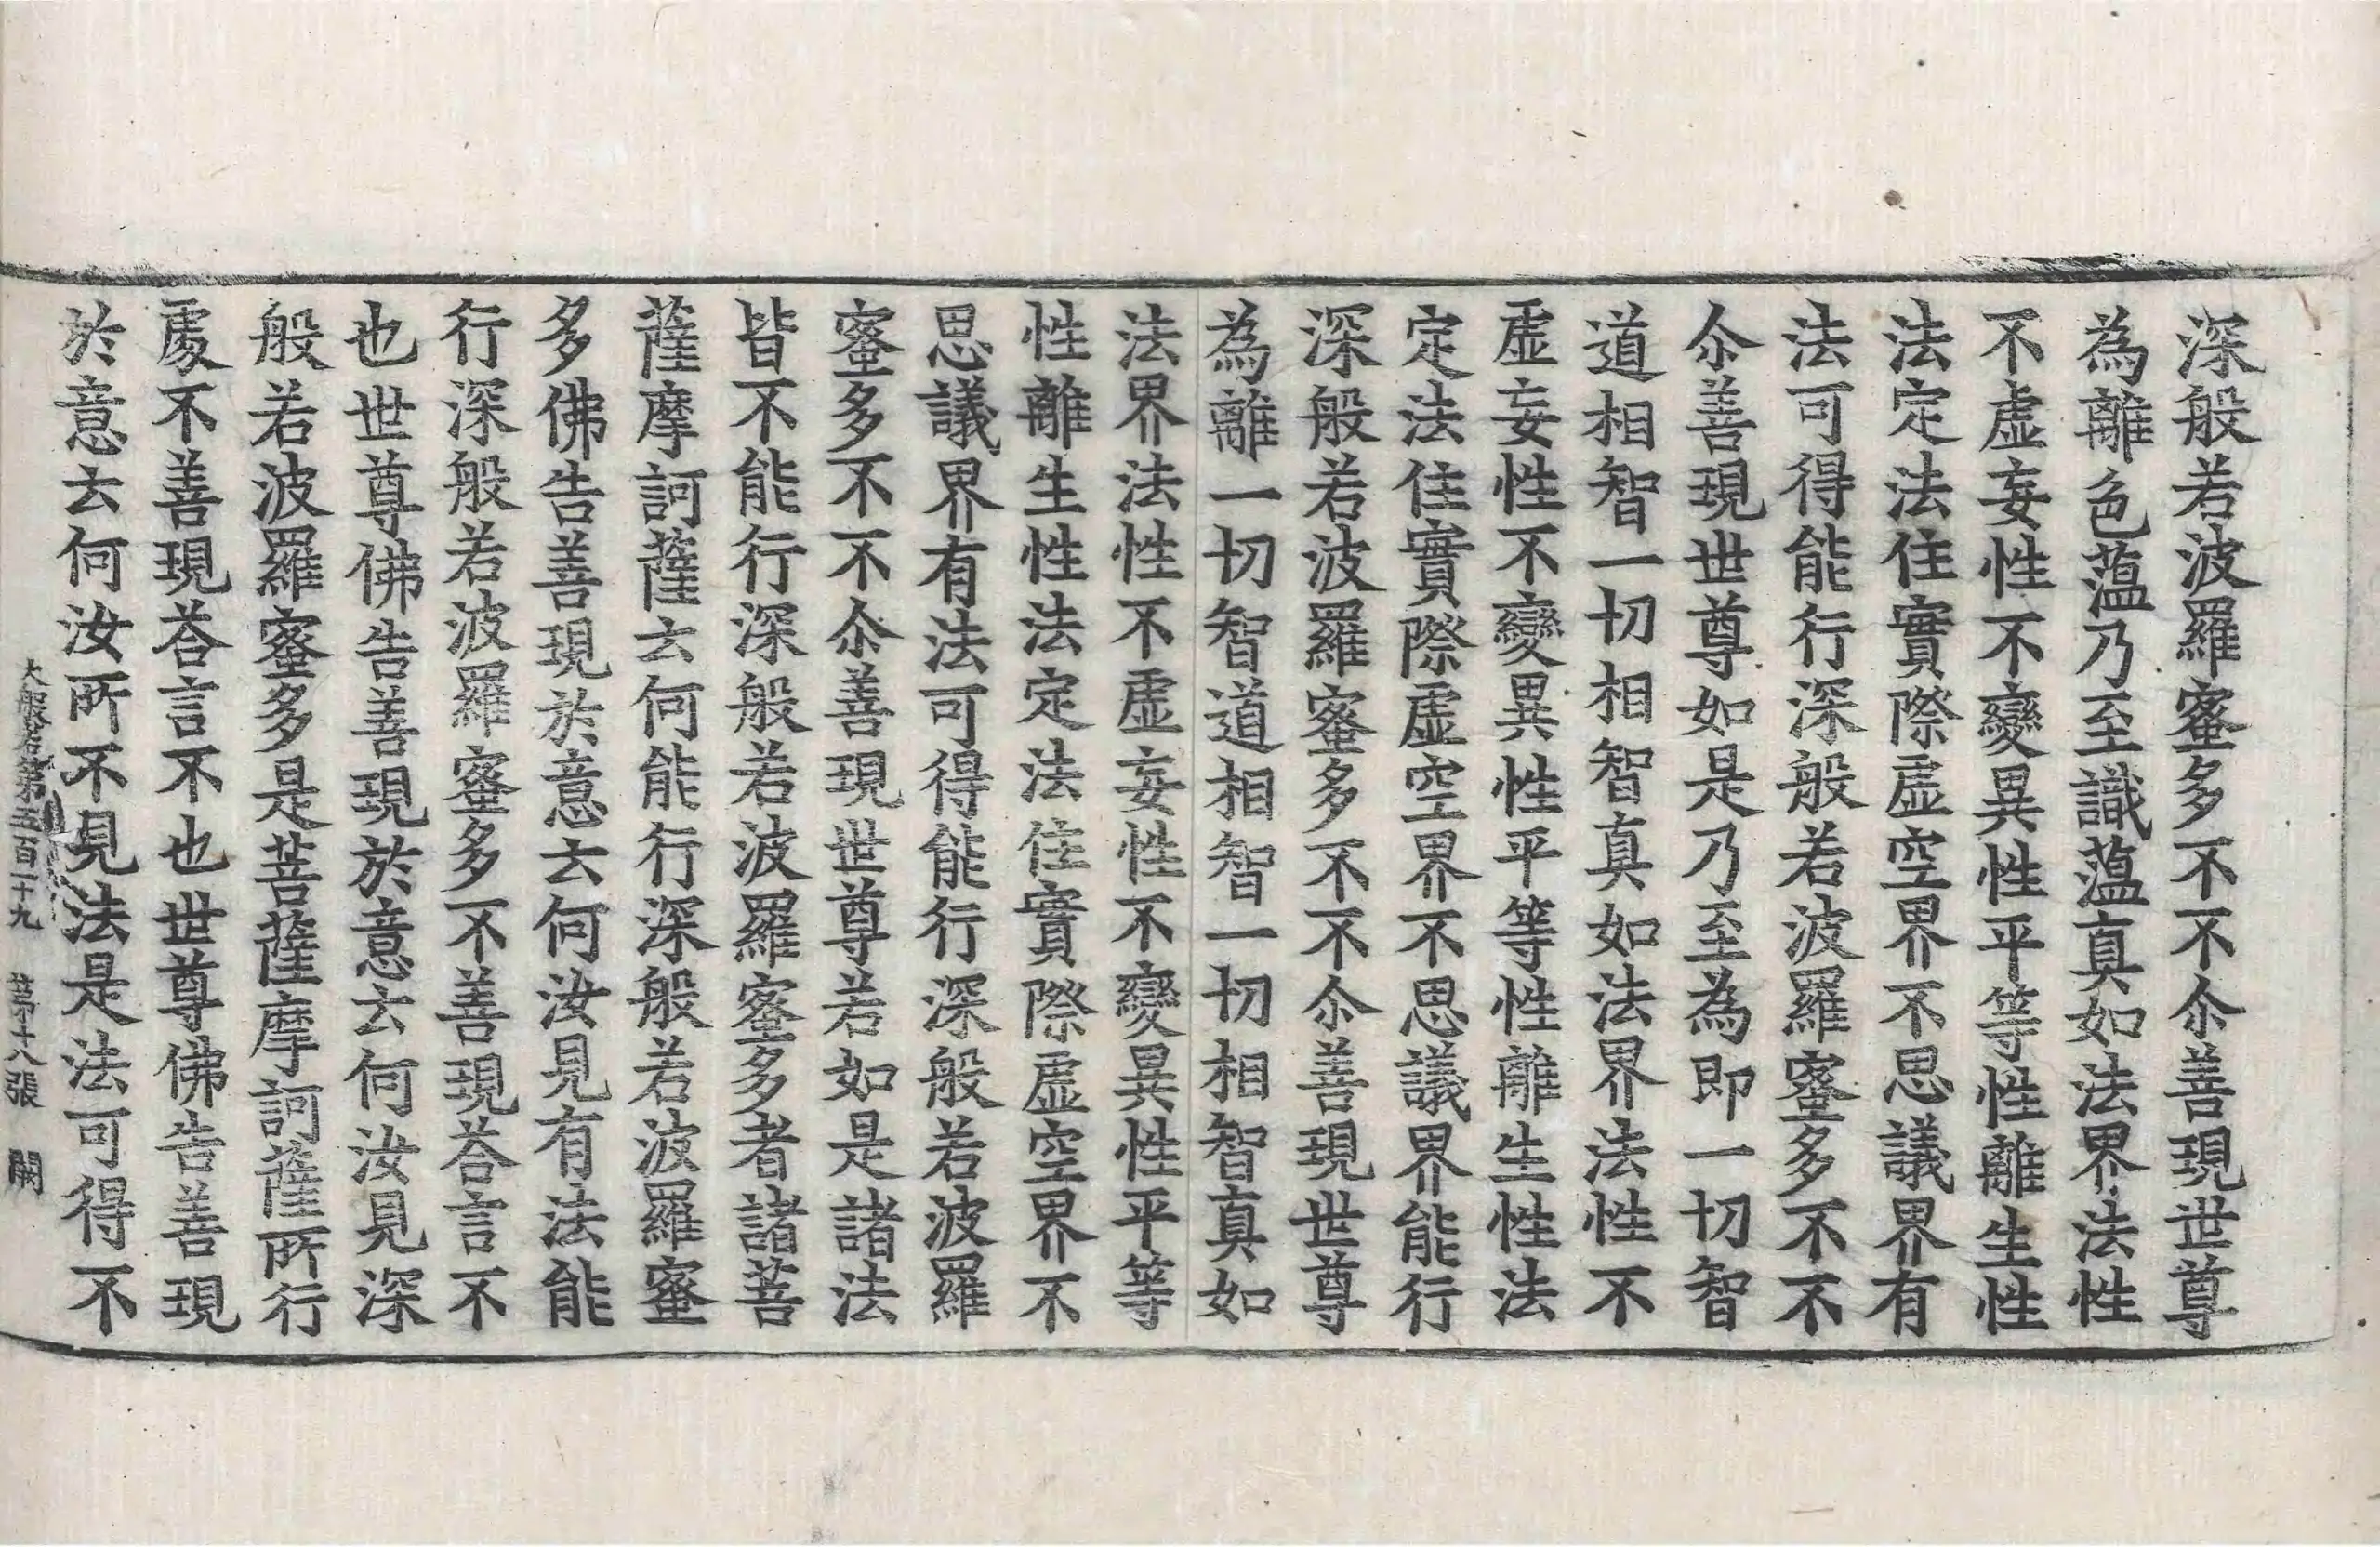 深般若波羅蜜多不不尒善現世尊
為離色薀乃至識薀真如法界法性
不虛妄性不變異性平等性離生性
法定法住實際虛空界不思議界有
法可得能行深般若波羅蜜多不不
尒善現世尊如是乃至為即一切智
道相智一切相智真如法界法性不
虛妄性不變異性平等性離生性法
定法住實際虛空界不思議界能行
深般若波羅蜜多不不尒善現世尊
為離一切智道相智一切相智真如
法界法性不虛妄性不變異性平等
性離生性法定法住實際虛空界不
思議界有法可得能行深般若波羅
蜜多不不尒善現世尊若如是諸法
皆不能行深般若波羅蜜多者諸菩
薩摩訶薩云何能行深般若波羅蜜
多佛告善現於意云何汝見有法能
行深般若波羅蜜多不善現荅言不
也世尊佛告善現於意云何汝見深
般若波羅蜜多是菩薩摩訶薩所行
處不善現荅言不也世尊佛告善現
於意云何汝所不見法是法可得不
大般若第五百二十九 第十八張 闕